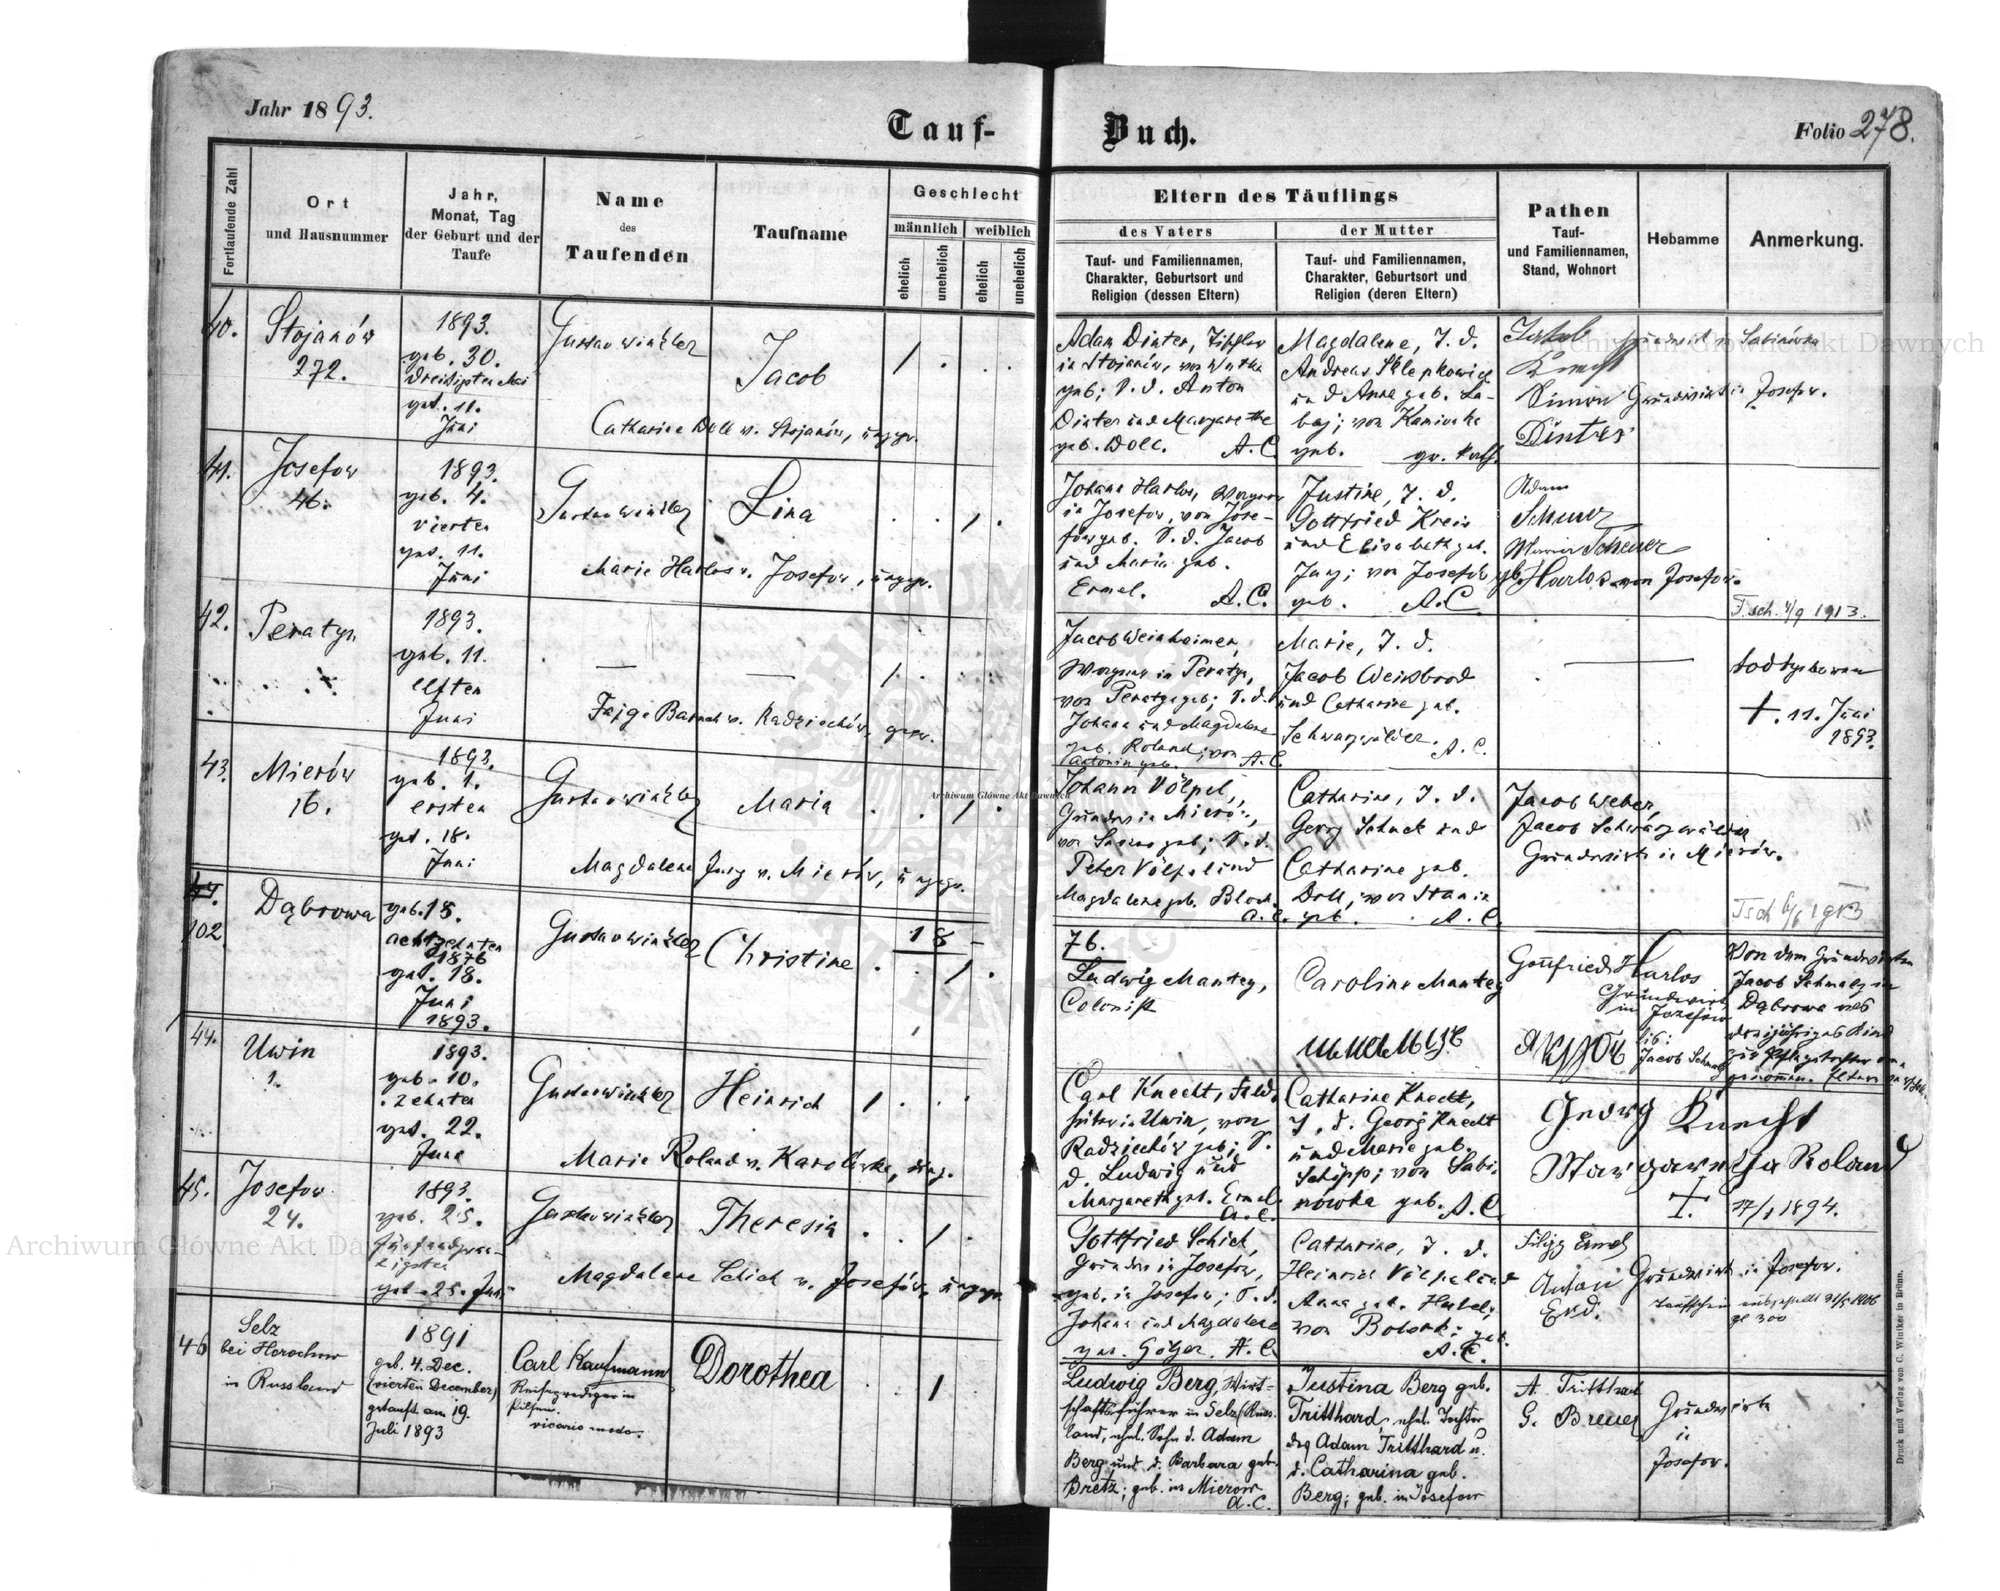 Jahr 1893.
Tauf-
Buch.
Folio 278.
Fortlaufende Zahl
Ort
und Hausnummer
Jahr,
Monat, Tag
der Geburt und der
Taufe
Name
des
Taufenden
Taufname
Geschlecht
männlich
weiblich
ehelich
unehelich
ehelich
unehelich
Eltern des Täuflings
des Vaters
Tauf- und Familiennamen,
Charakter, Geburtsort und
Religion (dessen Eltern)
der Mutter
Tauf- und Familiennamen,
Charakter, Geburtsort und
Religion (deren Eltern)
Pathen
Tauf-
und Familiennamen,
Stand, Wohnort
Hebamme
Anmerkung.
40.
Stojanów
272.
1893.
geb. 30.
dreißigsten Mai
get. 11.
Juni
Gustav Winkler
Jacob
1
Catharine Doll v. Stojanów, ungepr.
Adam Dinter,
in Stojanów, von
geb; S. d. Anton
Dinter und Margarethe
geb. Doll. A.C.
Magdalene, T. d.
Andreas Sklepkowicz
und Anna geb. La-
baj; von Kamionka
geb. gr. kath.
Jakob
Knecht
Grundwirth in Sabinówka
Simon
Dinter
Grundwirt in Josefow.
41.
Josefow
46.
1893.
geb. 4.
vierten
get. 11.
Juni
Gustav Winkler
Lina
1
Marie Harlos v. Josefow, ungepr.
Johann Harlos, Wagner
in Josefow, von Jose-
fow geb. S. d. Jacob
und Maria geb.
Ermel. A.C.
Justine, T. d.
Gottfried Kreis
und Elisabeth geb.
Jung; von Josefow
geb. A.C.
Adam
Scheuer
Maria Scheuer
gb. Harlos von Josefow.
T.sch. 4/9 1913.
42.
Peratyn
1893.
geb. 11.
elften
Juni
1
Fajge Barach v. Radziechów, gepr.
Jacob Weinheimer,
Wagner in Peratyn,
von Peratyn geb; S. d.
Johann und Magdalene
geb. Roland; von A.C.
Marie, T. d.
Jacob Weisbrod
und Catharine geb.
Schwarzwälder. A.C.
todtgeboren
+. 11. Juni
1893.
43.
Mierów
16.
1893.
geb. 1.
ersten
get. 18.
Juni
Gustav Winkler
Maria
1
Magdalene Jung v. Mierów, ungepr.
Johann Völpel,
Grundw. in Mierów,
geb; S. d.
Peter Völpel und
Magdalene geb. Bloch.
A.C.
Catharine, T. d.
Georg Schuck und
Catharine geb.
Doll; von Stanin
geb. A.C.
Jacob Weber,
Jacob Schwarzwälder
Grundwirth in Mierów.
Tsch 6/6 1913
44.
102
Dąbrowa
geb. 18.
achtzehnten
1876
get. 18.
Juni
1893.
Gustav Winkler
Christine
18
1
76.
Ludwig Mantey,
Colonist
Caroline Mantey
Gottfried Harlos
Grundwirt
in Josefow
Jacob Schmalz
Von dem Grundwirten
Jacob Schmalz in
Dąbrowa als
dreijähriges Kind
zur Pflegetochter an-
genommen.
44.
Uwin
1.
1893.
geb. 10.
zehnten
get. 22.
Juni
Gustav Winkler
Heinrich
1
Marie Roland v. Karolówka, ung.
Carl Knecht, Feld-
hüter in Uwin, von
Radziechów geb; S.
d. Ludwig und
Margareth geb. Ermel.
A.C.
Catharine Knecht,
T. d. Georg Knecht
und Marie geb.
Schipp; von Sabi-
nówka geb. A.C.
Georg Knecht
Margaretha Roland
+. 17/1 1894.
45.
Josefow
24.
1893.
geb. 25.
fünfundzwan-
zigsten
get. 25. Juni
Gustav Winkler
Theresia
1
Magdalene Schick v. Josefów, ungepr.
Gottfried Schick,
Grundw. in Josefów,
geb. in Josefow; S. d.
Johann und Magdalene
geb. Götzer. A.C.
Catharine, T. d.
Heinrich Völpel und
Anna geb. Hubel;
von Bolork; geb.
A.C.
Filipp Ermel
Anton
Grundwirt in Josefow.
Taufschein ausgestellt 31/5 1906
gl 300
46
Selz
bei Horochow
in Russland
1891
geb. 4. Dec.
(vierten December)
getauft am 19.
Juli 1893
Carl Kaufmann
Reiseprediger in
Pilsen.
vicario modo.
Dorothea
1
Ludwig Berg, Wirt-
schaftsführer in Selz (Russ-
land, ehel. Sohn d. Adam
Berg und d. Barbara geb.
Bretz; geb. in Mierow
A.C.
Justina Berg geb.
Tritthard, ehel. Tochter
des Adam Tritthard u.
d. Catharina geb.
Berg; geb. in Josefow
A. Tritthard
G. Breuer
Grundwirte
in
Josefow.
Druck und Verlag von C. Winiker in Brünn.
Archiwum Główne Akt Dawnych
Archiwum Główne Akt Dawnych
Archiwum Główne Akt Dawnych